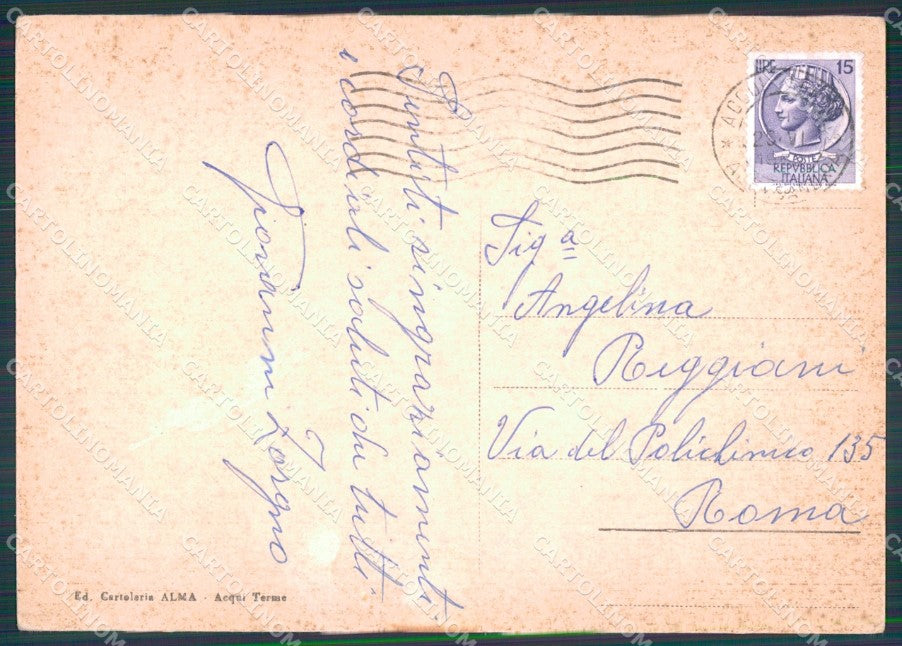 Sentiti ringraziamenti
e cordiali saluti da tutti.
Giovanni Zorgno
Ed. Cartoleria ALMA - Acqui Terme
LIRE 15
POSTE
REPVBBLICA
ITALIANA
ACQUI
Sig.a
Angelina
Reggiani
Via del Policlinico 135
Roma
CARTOLINOMANIA